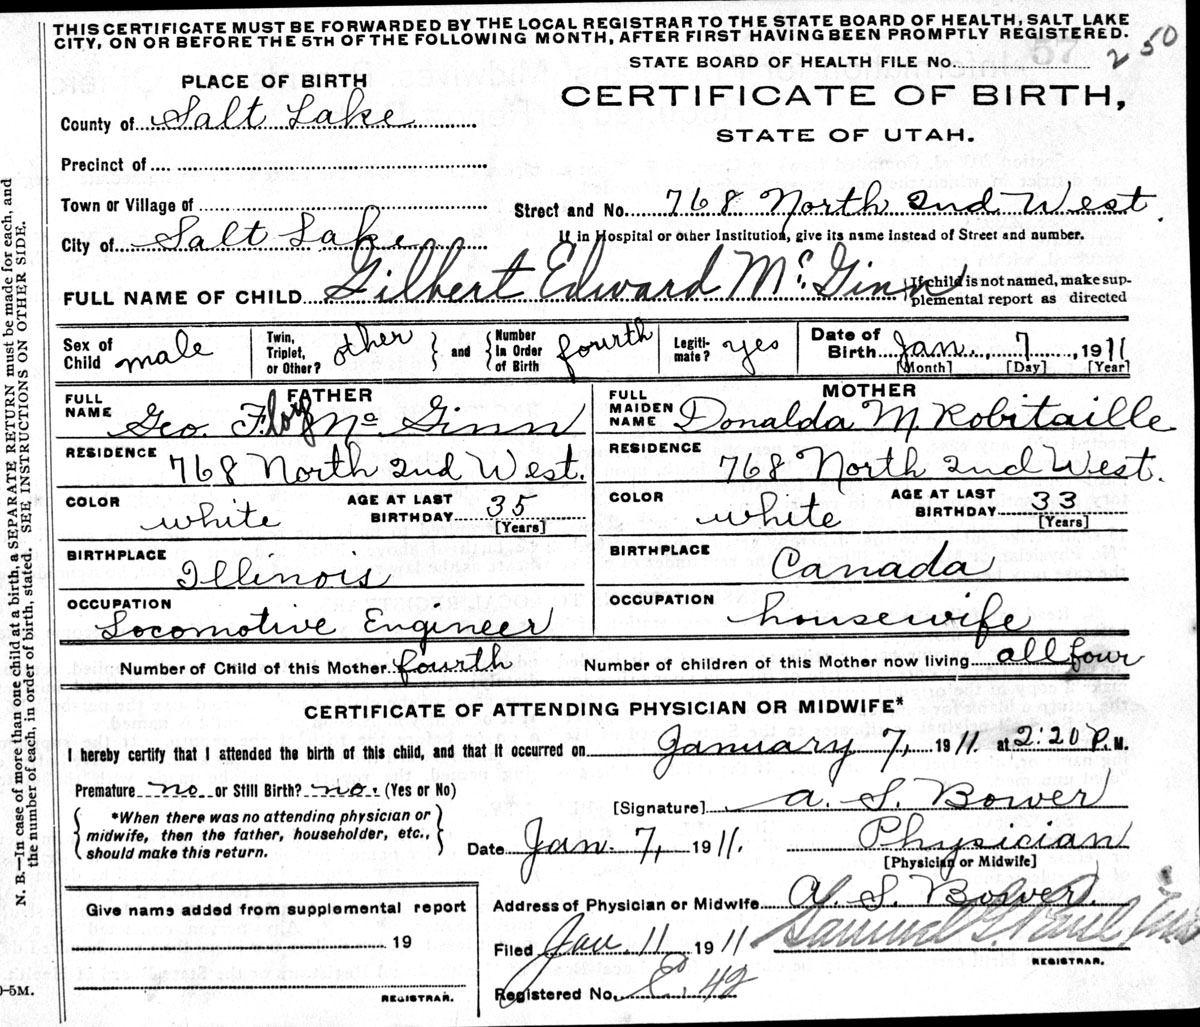 THIS CERTIFICATE MUST BE FORWARDED BY THE LOCAL REGISTRAR TO THE STATE BOARD OF HEALTH, SALT LAKE
CITY, ON OR BEFORE THE 5TH OF THE FOLLOWING MONTH, AFTER FIRST HAVING BEEN PROMPTLY REGISTERED.
STATE BOARD OF HEALTH FILE No. 250
PLACE OF BIRTH
CERTIFICATE OF BIRTH,
County of Salt Lake
STATE OF UTAH.
Precinct of
Town or Village of
Street and No. 768 North 2nd West.
City of Salt Lake
If in Hospital or other Institution, give its name instead of Street and number.
FULL NAME OF CHILD Gilbert Edward McGinn
If child is not named, make sup-
plemental report as directed
Sex of Child male
Twin, Triplet, or Other? other
and
Number In Order of Birth fourth
Legiti-mate? yes
Date of Birth Jan., 7, 1911
[Month] [Day] [Year]
FATHER
FULL NAME Geo. Floy McGinn
RESIDENCE 768 North 2nd West.
COLOR white
AGE AT LAST BIRTHDAY 35
[Years]
BIRTHPLACE Illinois
OCCUPATION Locomotive Engineer
MOTHER
FULL MAIDEN NAME Donalda M. Robitaille
RESIDENCE 768 North 2nd West.
COLOR white
AGE AT LAST BIRTHDAY 33
[Years]
BIRTHPLACE Canada
OCCUPATION housewife
Number of Child of this Mother fourth
Number of children of this Mother now living all four
CERTIFICATE OF ATTENDING PHYSICIAN OR MIDWIFE*
I hereby certify that I attended the birth of this child, and that it occurred on January 7, 1911 at 2:20 P. M.
Premature no or Still Birth? no. (Yes or No)
[Signature] A. S. Bower
*When there was no attending physician or
midwife, then the father, householder, etc.,
should make this return.
Date Jan. 7, 1911.
Physician
[Physician or Midwife]
Address of Physician or Midwife A. S. Bower.
Give name added from supplemental report
19
REGISTRAR.
Filed Jan. 11 1911
Samuel G. Paul,
REGISTRAR.
Registered No. E. 42
N. B.—In case of more than one child at a birth, a SEPARATE RETURN must be made for each, and
the number of each, in order of birth, stated. SEE INSTRUCTIONS ON OTHER SIDE.
-5M.